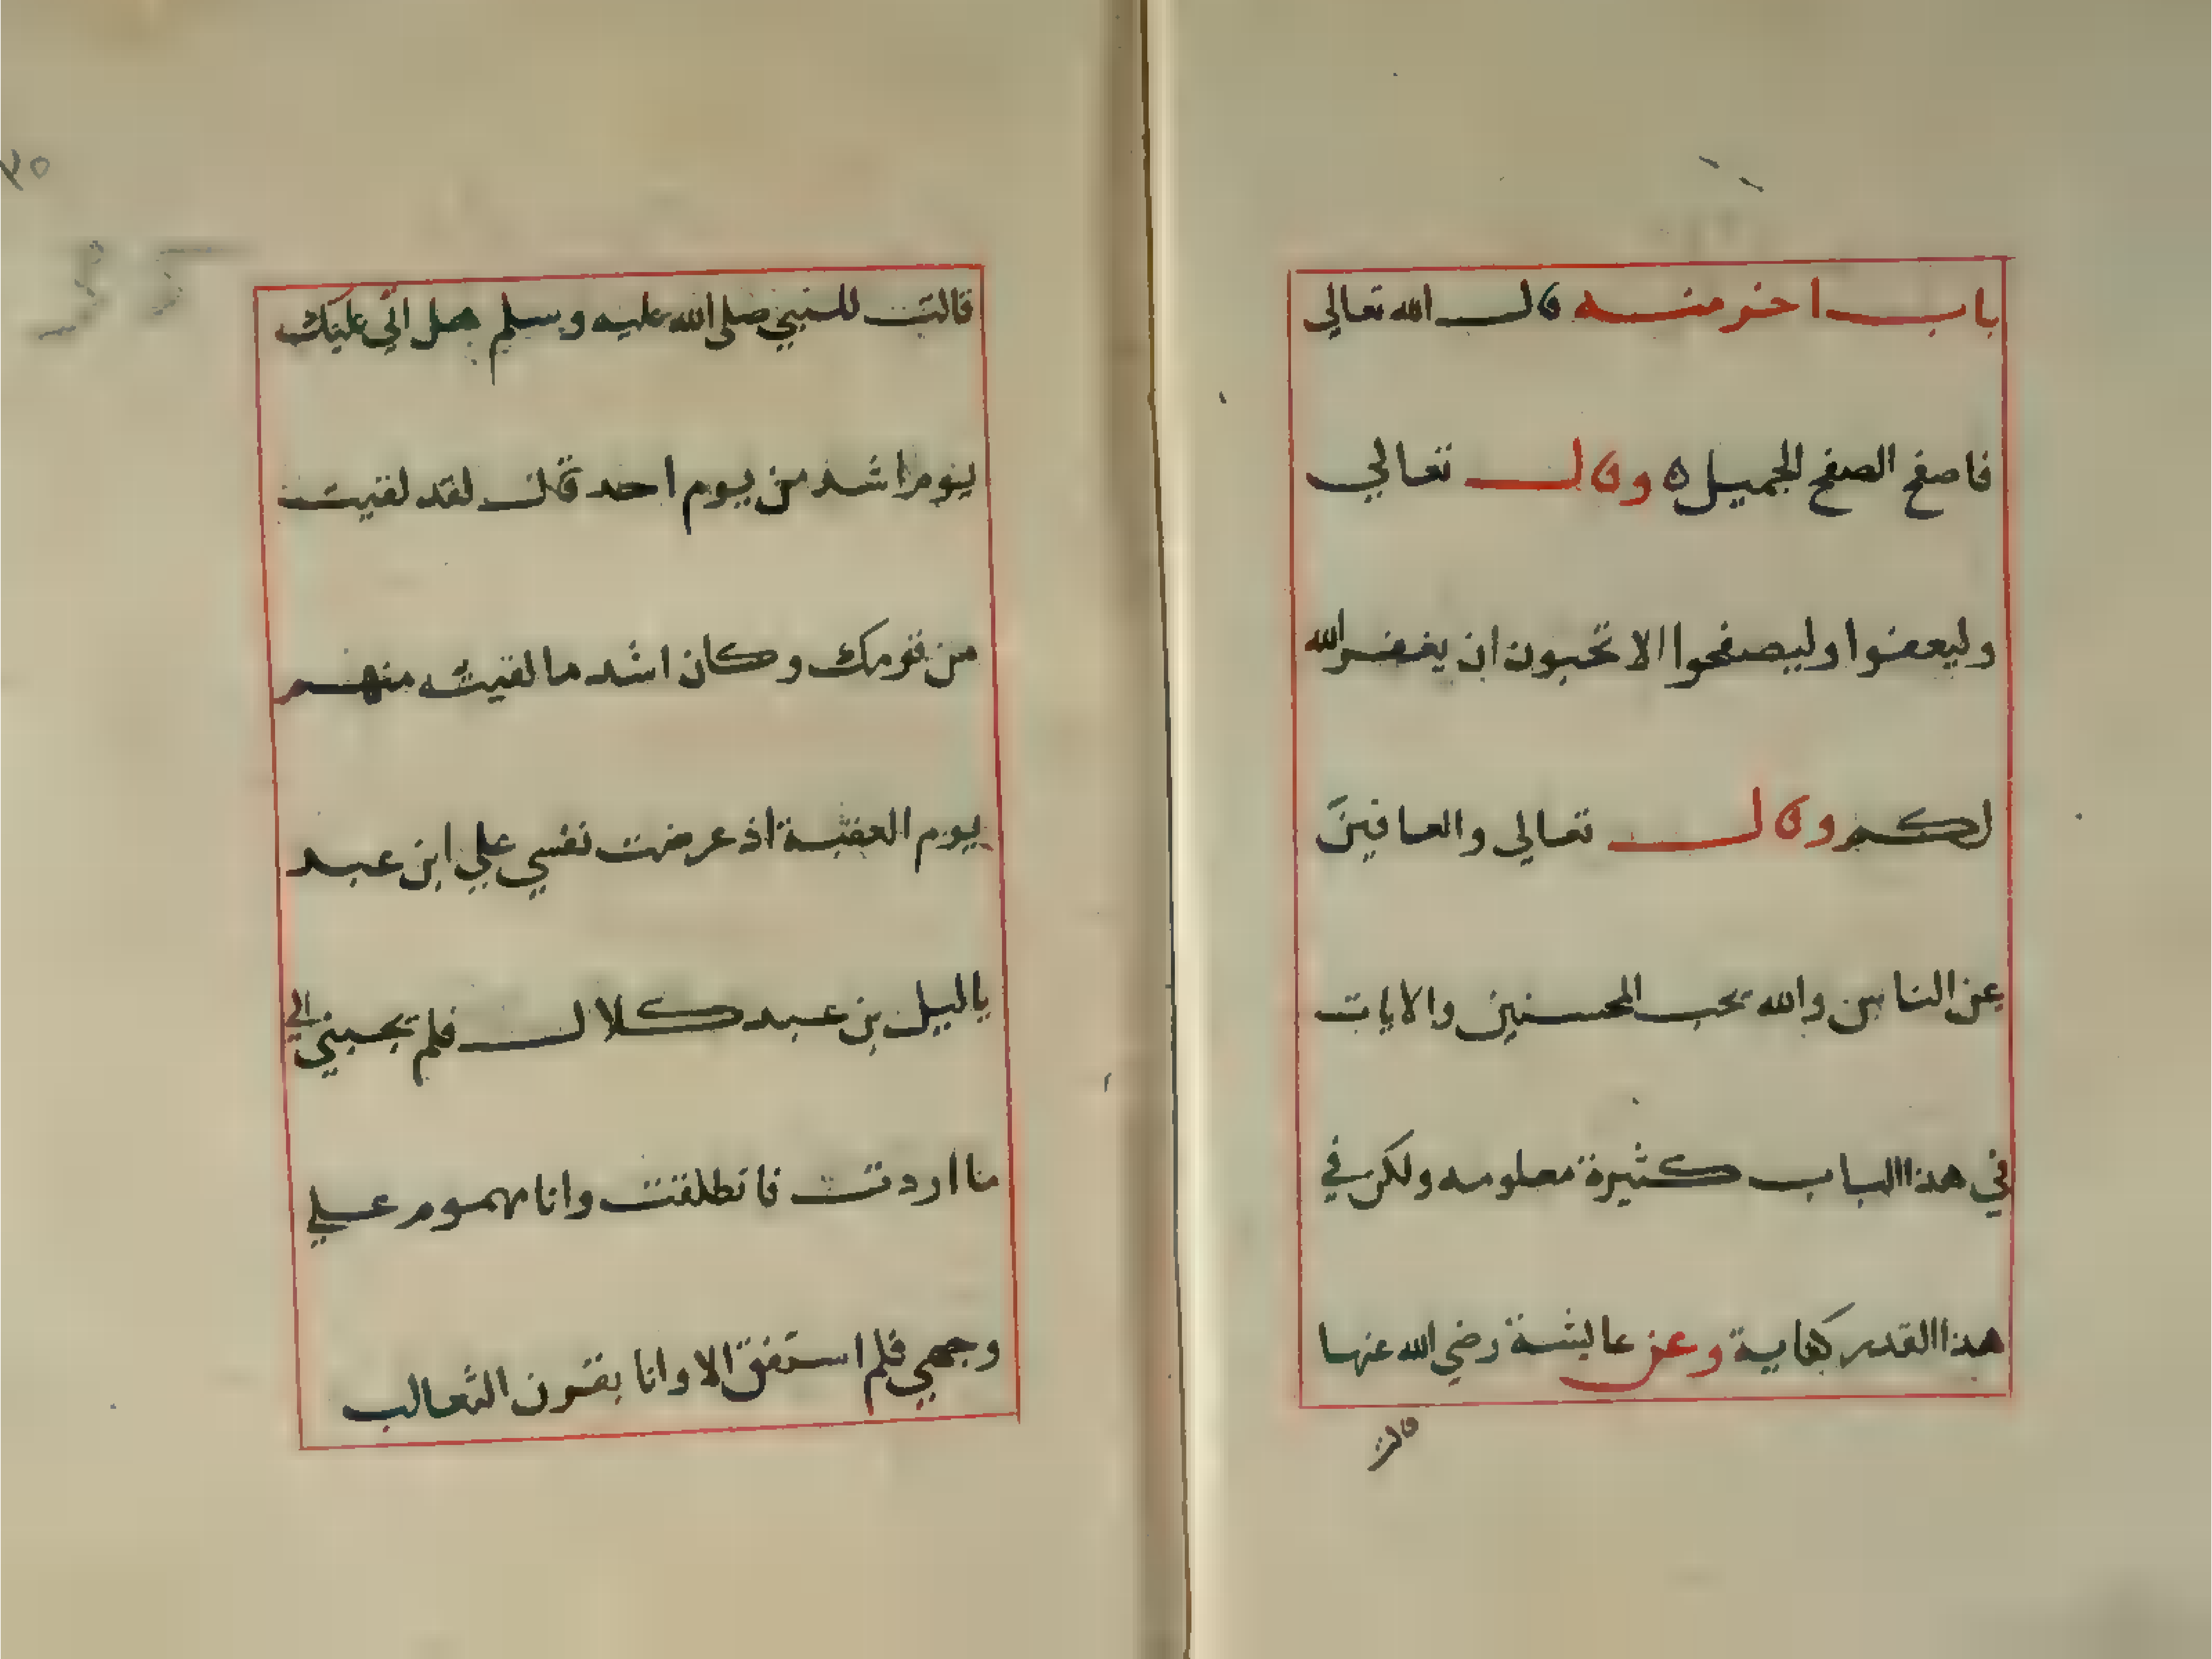 باب اخر منه قال الله تعالي
فاصفح الصفح الجميل ه وقال تعالي
وليعفوا وليصفحوا الا تحبون ان يغفر الله
لكم وقال تعالي والعافين
عن الناس والله يحب المحسنين والايات
في هذا الباب كثيرة معلومه ولكن في
هذا القدر كفاية وعن عايشة رضي الله عنها
قالت
٣٥
قالت للنبي صلي الله عليه وسلم هل اتي عليك
يوم اشد من يوم احد قال لقد لقيت
من قومك وكان اشد ما لقيته منهم
يوم العقبة اذ عرضت نفسي علي ابن عبد
ياليل بن عبد كلال فلم يجبني الي
ما اردت فانطلقت وانا مهموم علي
وجهي فلم استفق الا وانا بقرن الثعالب